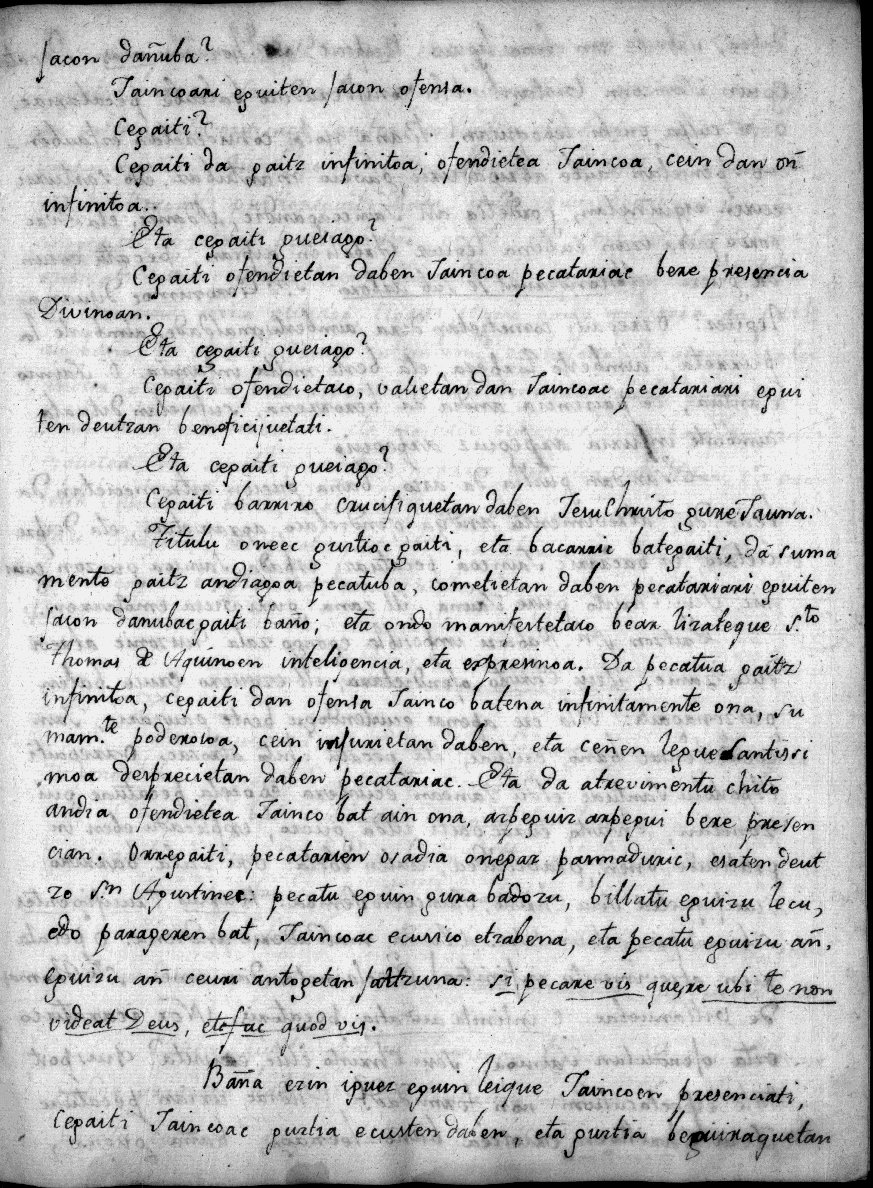 sacon dañuba?
Jaincoari eguiten sacon ofensa.
Cegaiti?
Cegaiti da gaitz infinitoa, ofendietea Jaincoa, cein dan on
infinitoa.
Eta cegaiti gueiago?
Cegaiti ofendietan daben Jaincoa pecatariac bere presencia
Divinoan.
Eta cegaiti gueiago?
Cegaiti ofendietaco, valietan dan Jaincoac pecatariari egui
ten deutzan beneficijuetati.
Eta cegaiti gueiago?
Cegaiti barriro crucifiquetan daben Jesu Christo gure Jauna.
Titulu oneec gustioc gaiti, eta bacarric bategaiti, da suma
mente gaitz andiagoa pecatuba, cometietan daben pecatariari eguiten
sacon danubac gaiti baño; eta ondo manifestetaco bear lizateque S.to
Thomas de Aquinoen inteligencia, eta expresinoa. Da pecatua gaitz
infinitoa, cegaiti dan ofensa Jainco batena infinitamente ona, su
mam.te poderosoa, cein injurietan daben, eta ceñen legue Santissi
moa desprecietan daben pecatariac. Eta da atrevimentu chito
andia ofendietea Jainco bat ain ona, arpeguiz arpegui bere presen
cian. Orregaiti, pecatarien osadia onegaz pasmaduric, esaten deut
zo S.n Agustinec: pecatu eguin gura badozu, billatu eguizu lecu,
edo parageren bat, Jaincoac ecusico etzabena, eta pecatu eguizu an,
eguizu an ceuri antogetan jatzuna: si pecare vis quere ubi te non
videat Deus, et fac quod vis.
Baña ezin iguez eguin leique Jaincoen presenciati,
cegaiti Jaincoac gustia ecusten daben, eta gustia beguiraquetan